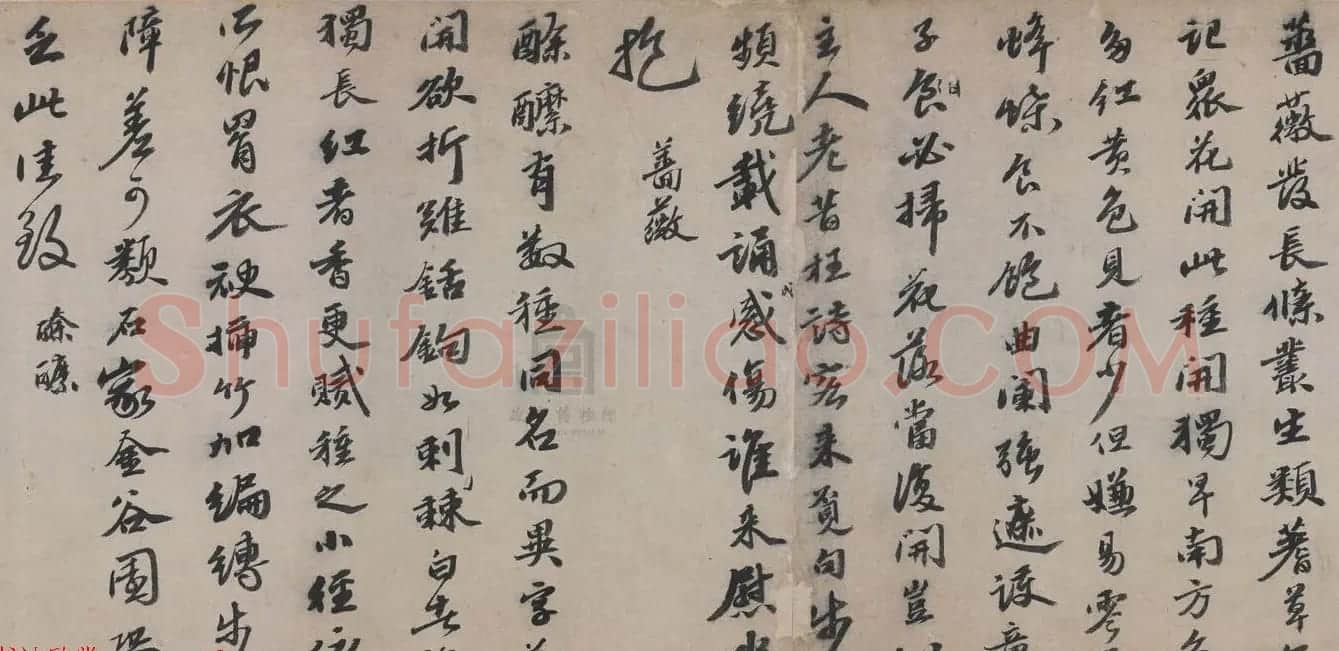 薔薇發長條叢生類蓍草
記衆花開此種開獨早南方
多紅黄色見者少但嫌易零
蜂蝶食不飽曲闌強遮護
子食必掃花落當復開豈
主人老昔枉詩客来覓句步
頻繞載誦感傷誰来慰
抱
薔薇
酴醿有数種同名而異字
開欲折難銛鉤如刺棘白者
獨長紅者香更賦種之小徑
只恨罥衣袂插竹加編縛步
障差可類石家金谷園
乏此佳致
酴醿
shufaziliao.COM